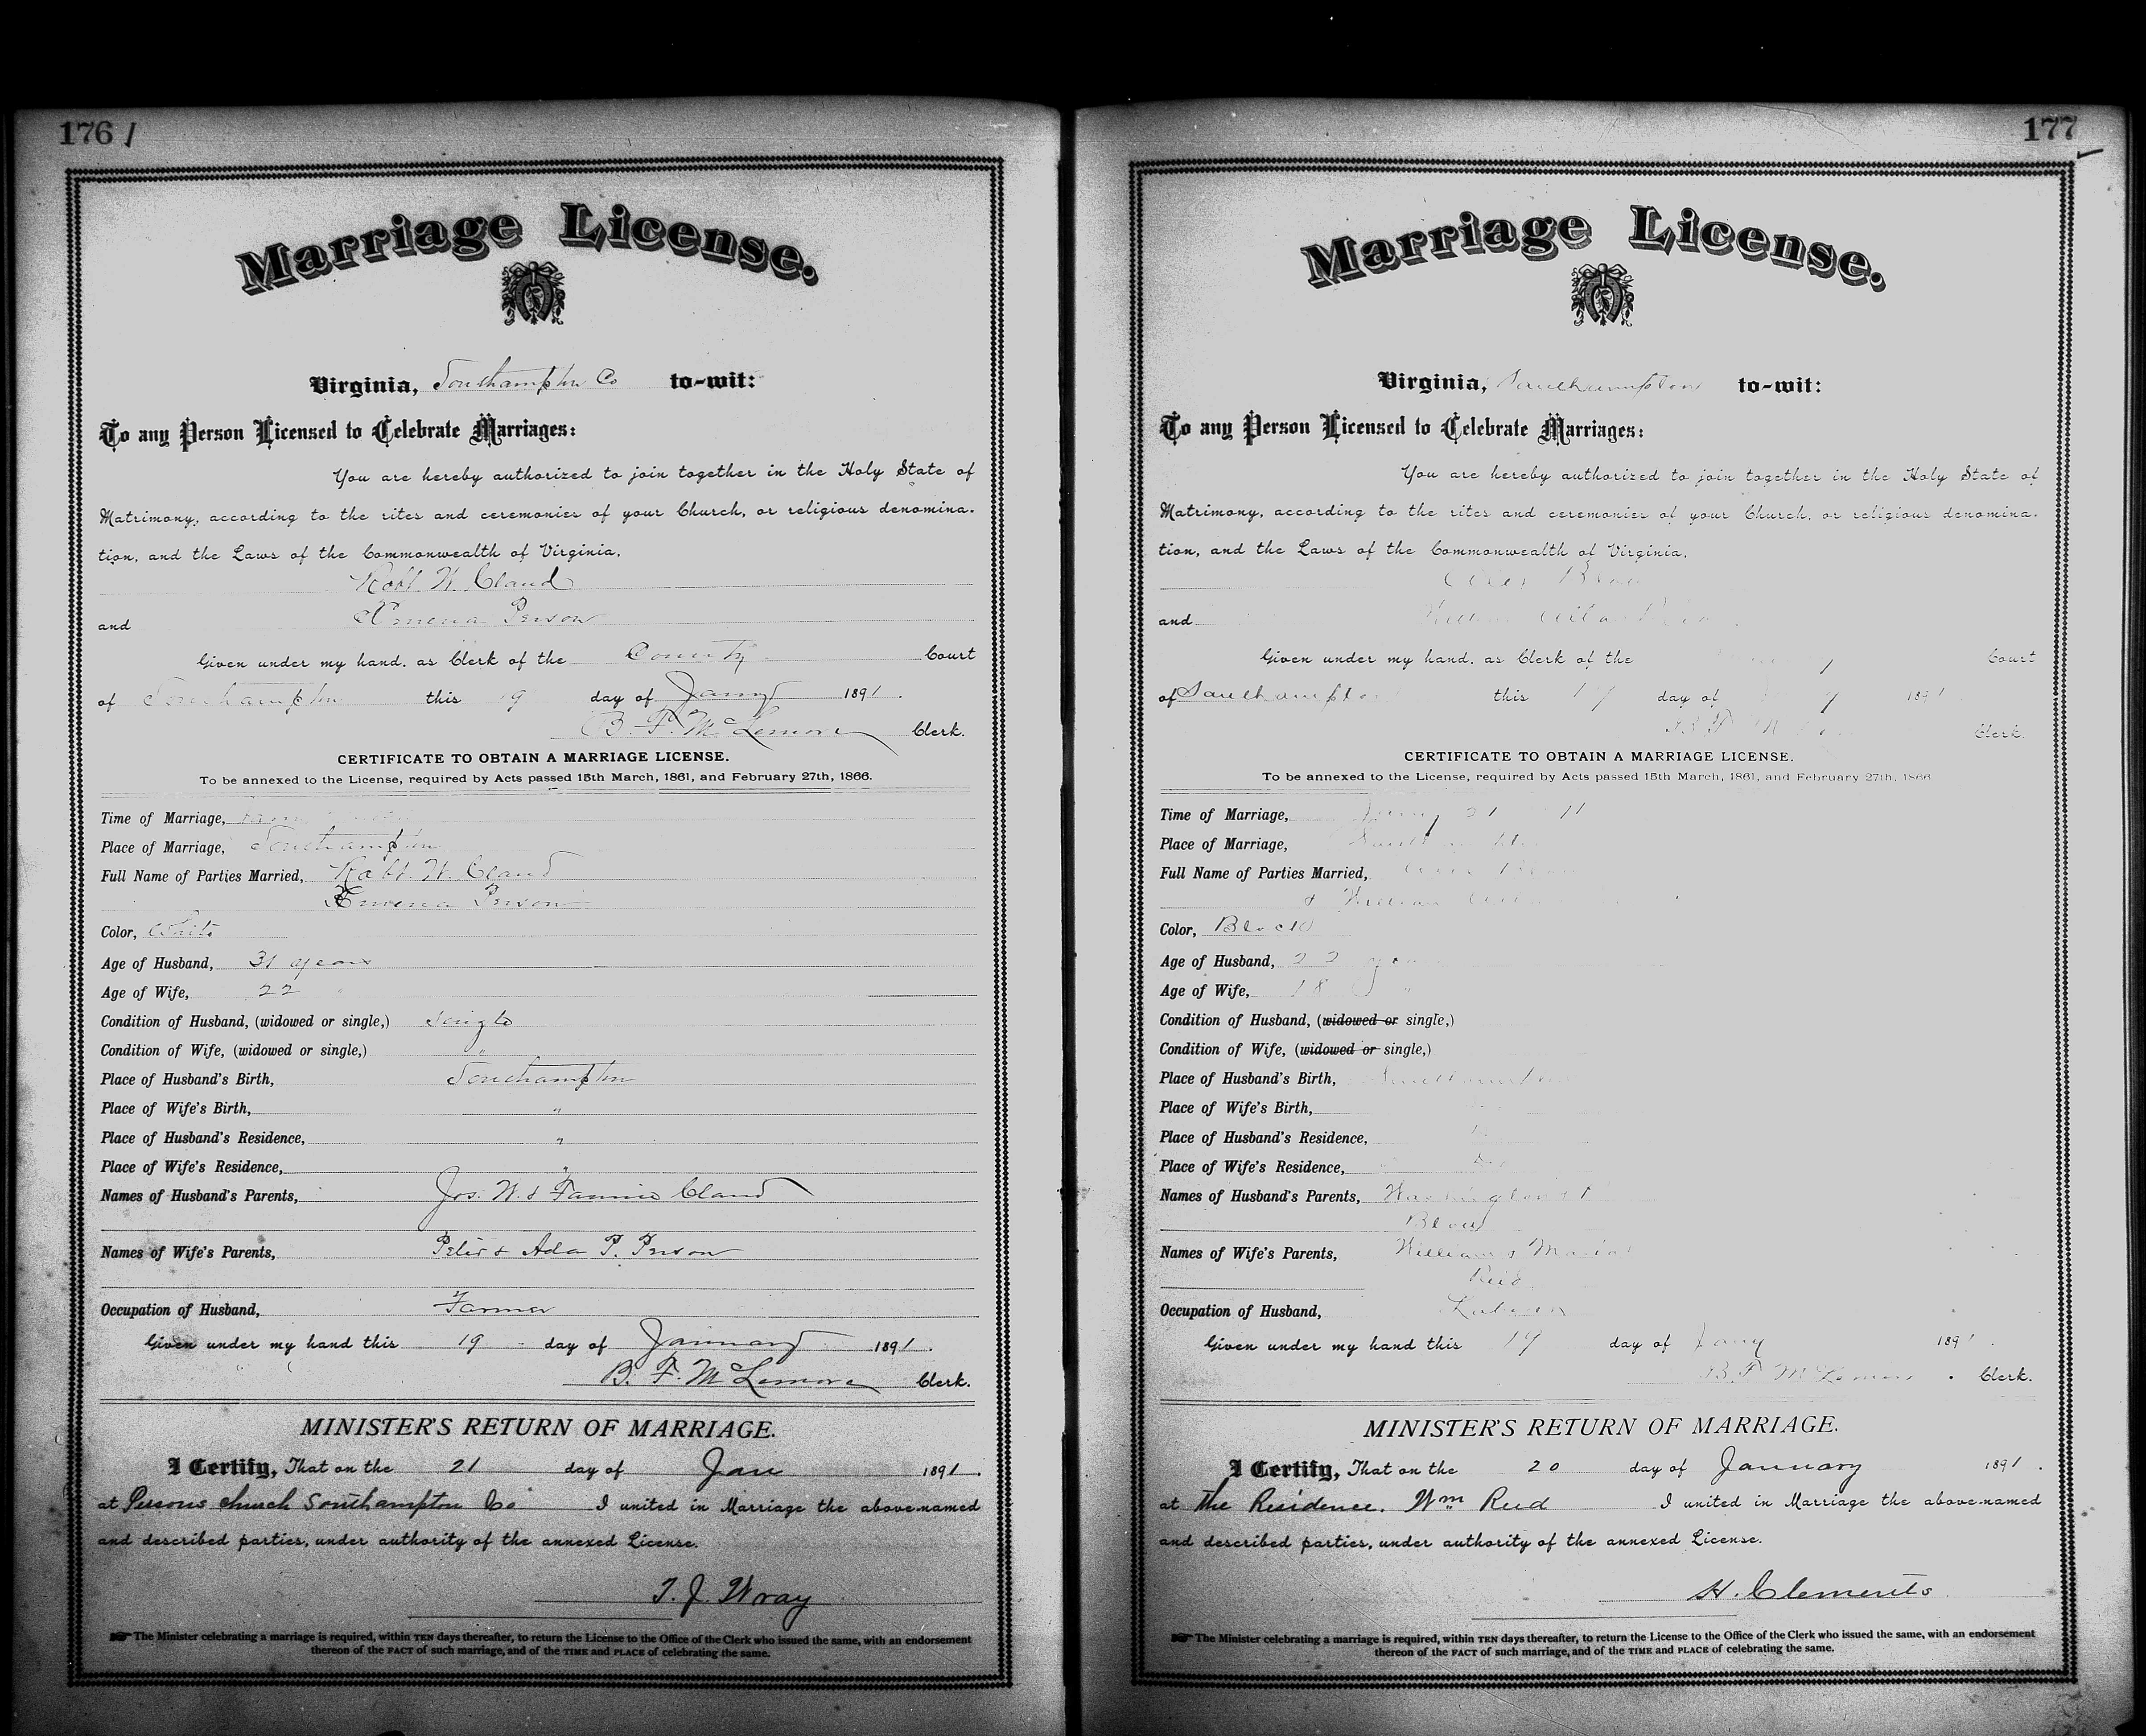 176
Marriage License.
Virginia, Southampton Co to-wit:
To any Person Licensed to Celebrate Marriages:
You are hereby authorized to join together in the Holy State of
Matrimony, according to the rites and ceremonies of your Church, or religious denomina-
tion, and the Laws of the Commonwealth of Virginia,
Robt. W. Claud
and Person
Given under my hand, as Clerk of the County Court
of Southampton this 19 day of Jany 1891.
B. F. McLemore Clerk.
CERTIFICATE TO OBTAIN A MARRIAGE LICENSE.
To be annexed to the License, required by Acts passed 15th March, 1861, and February 27th, 1866.
Time of Marriage,
Place of Marriage, Southampton
Full Name of Parties Married, Robt. W. Claud
Person
Color, White
Age of Husband, 31 years
Age of Wife, 22 "
Condition of Husband, (widowed or single,) Single
Condition of Wife, (widowed or single,) "
Place of Husband's Birth, Southampton
Place of Wife's Birth, "
Place of Husband's Residence, "
Place of Wife's Residence, "
Names of Husband's Parents, Jos. W. & Fannie Claud
Names of Wife's Parents, Peter & Ada P. Person
Occupation of Husband, Farmer
Given under my hand this 19 day of January 1891.
B. F. McLemore Clerk.
MINISTER'S RETURN OF MARRIAGE.
I Certify, That on the 21 day of Jan 1891.
at Persons church Southampton Co I united in Marriage the above-named
and described parties, under authority of the annexed License.
T. J. Wray
The Minister celebrating a marriage is required, within TEN days thereafter, to return the License to the Office of the Clerk who issued the same, with an endorsement
thereon of the FACT of such marriage, and of the TIME and PLACE of celebrating the same.
177
Marriage License.
Virginia, Southampton to-wit:
To any Person Licensed to Celebrate Marriages:
You are hereby authorized to join together in the Holy State of
Matrimony, according to the rites and ceremonies of your Church, or religious denomina-
tion, and the Laws of the Commonwealth of Virginia,
and
Given under my hand, as Clerk of the Court
of Southampton this 19 day of 1891
Clerk.
CERTIFICATE TO OBTAIN A MARRIAGE LICENSE.
To be annexed to the License, required by Acts passed 15th March, 1861, and February 27th, 1866
Time of Marriage, Jany 21
Place of Marriage,
Full Name of Parties Married,
&
Color, Black
Age of Husband, 22
Age of Wife, 18 "
Condition of Husband, (widowed or single,)
Condition of Wife, (widowed or single,)
Place of Husband's Birth, Southampton
Place of Wife's Birth,
Place of Husband's Residence,
Place of Wife's Residence,
Names of Husband's Parents, Washington &
Blow
Names of Wife's Parents, William & Maria
Reid
Occupation of Husband,
Given under my hand this 19 day of Jany 1891.
B. F. McLemore Clerk.
MINISTER'S RETURN OF MARRIAGE.
I Certify, That on the 20 day of January 1891.
at The Residence. Wm Reid I united in Marriage the above-named
and described parties, under authority of the annexed License.
H. Clements
The Minister celebrating a marriage is required, within TEN days thereafter, to return the License to the Office of the Clerk who issued the same, with an endorsement
thereon of the FACT of such marriage, and of the TIME and PLACE of celebrating the same.